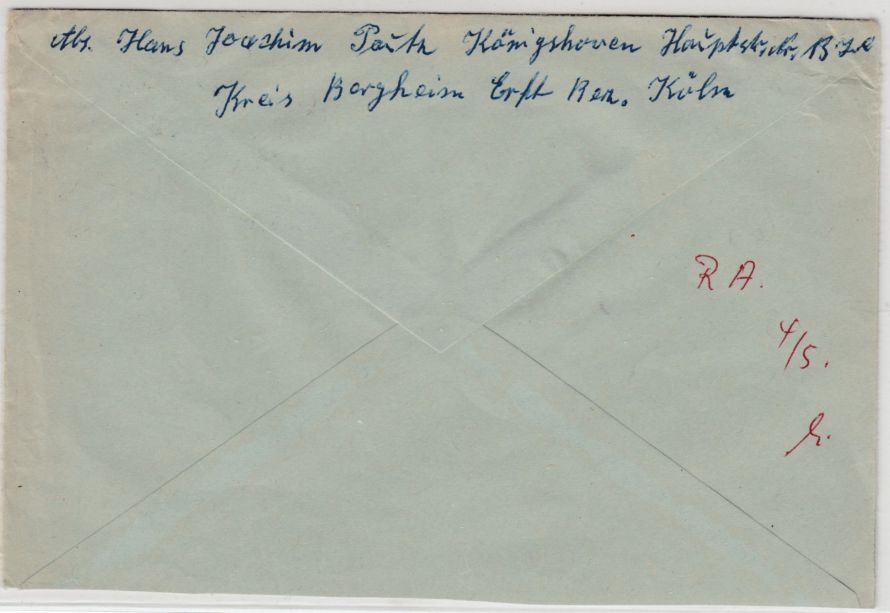 Abs. Hans Joachim Pautz Königshoven Hauptstr.
Kreis Bergheim Erft Bez. Köln
R A.
4/5.